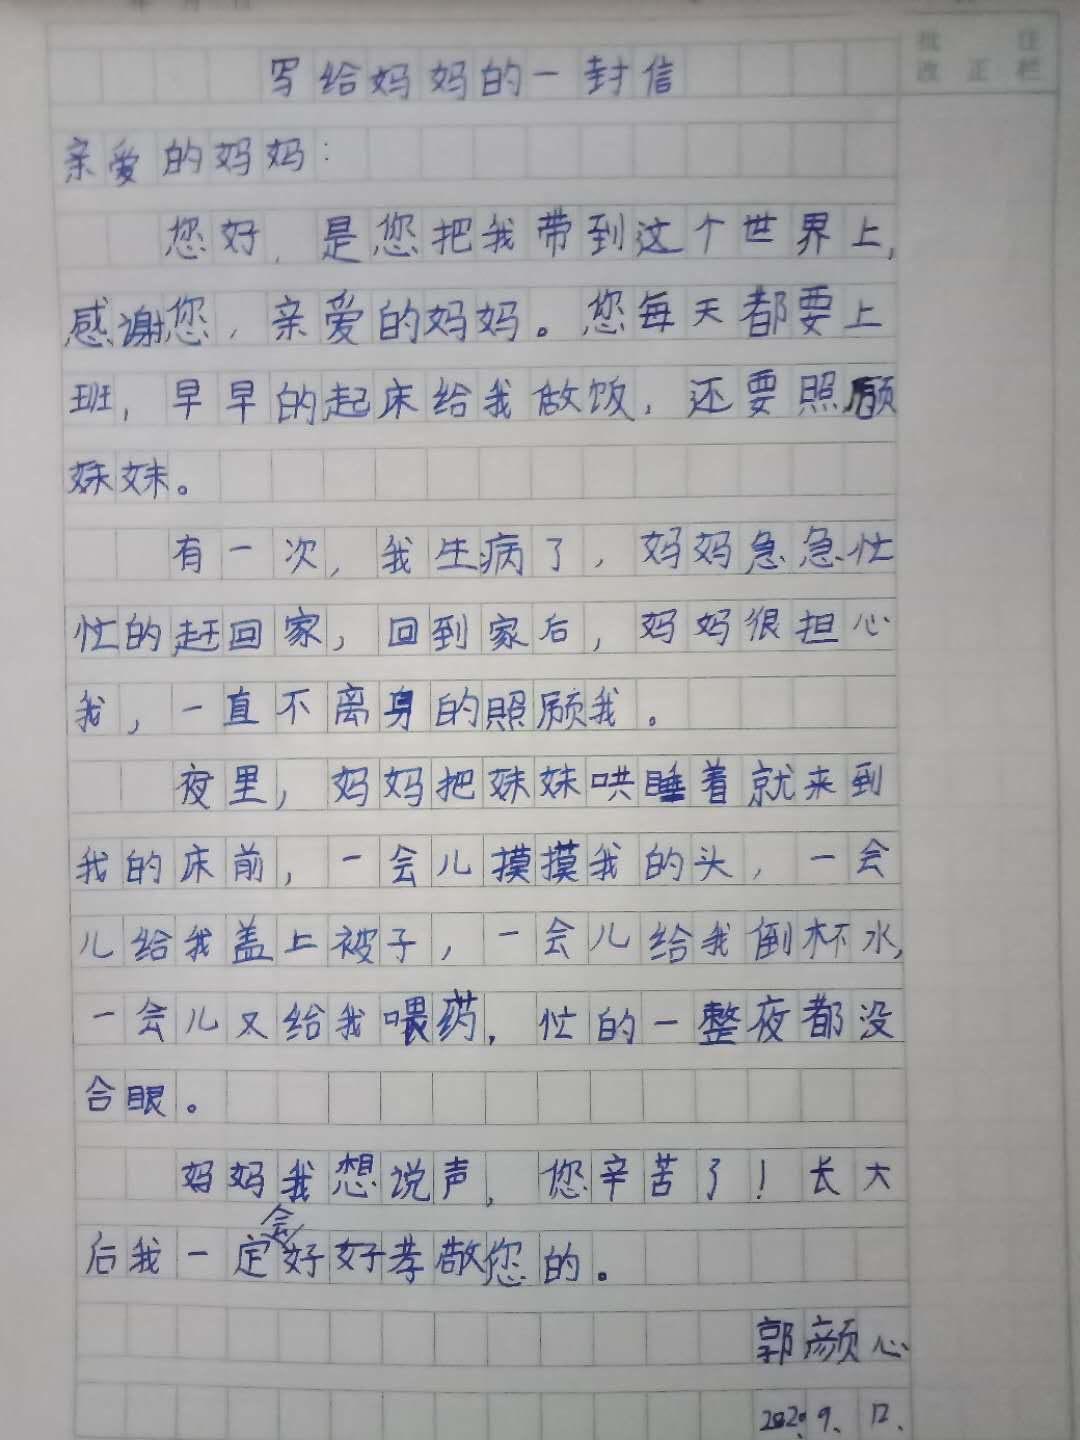 批注
改正栏
写给妈妈的一封信
亲爱的妈妈：
您好，是您把我带到这个世界上，
感谢您，亲爱的妈妈。您每天都要上
班，早早的起床给我做饭，还要照顾
妹妹。
有一次，我生病了，妈妈急急忙
忙的赶回家，回到家后，妈妈很担心
我，一直不离身的照顾我。
夜里，妈妈把妹妹哄睡着就来到
我的床前，一会儿摸摸我的头，一会
儿给我盖上被子，一会儿给我倒杯水，
一会儿又给我喂药，忙的一整夜都没
合眼。
妈妈我想说声，您辛苦了！长大
后我一定会好好孝敬您的。
郭颜心
2020.9.12.